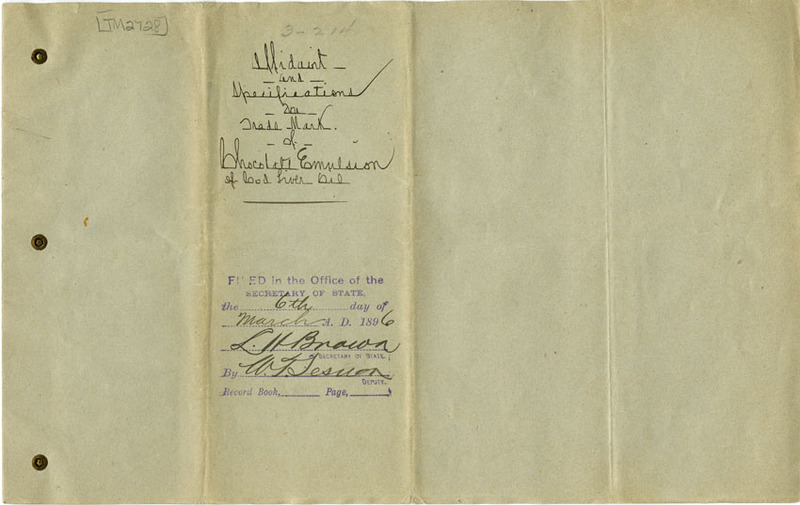 [TM2728]
3-214
Affidavit
and
Specifications
Trade Mark.
of
Chocolate Emulsion
of Cod Liver Oil
FILED in the Office of the
SECRETARY OF STATE,
the 6th day of
March A. D. 1896
L. H. Brown
SECRETARY OF STATE.
By W. T. Sesnon
DEPUTY.
Record Book, Page,